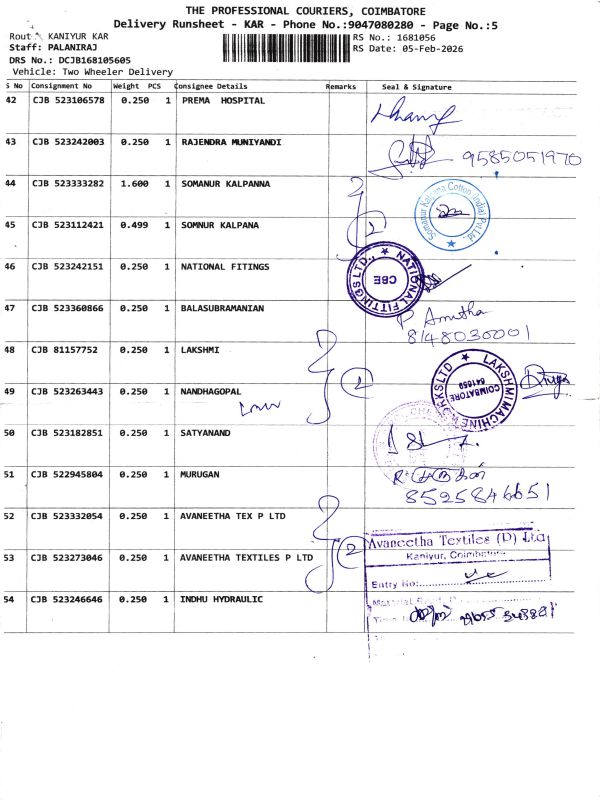 THE PROFESSIONAL COURIERS, COIMBATORE
Delivery Runsheet - KAR - Phone No.:9047080280 - Page No.:5
Rout : KANIYUR KAR
RS No.: 1681056
Staff: PALANIRAJ
RS Date: 05-Feb-2026
DRS No.: DCJB168105605
Vehicle: Two Wheeler Delivery
S No Consignment No Weight PCS Consignee Details Remarks Seal & Signature
42 CJB 523106578 0.250 1 PREMA HOSPITAL
43 CJB 523242003 0.250 1 RAJENDRA MUNIYANDI 9585051970
44 CJB 523333282 1.600 1 SOMANUR KALPANNA
Somanur Kalpana Cotton (India) Pvt Ltd
45 CJB 523112421 0.499 1 SOMNUR KALPANA 2
46 CJB 523242151 0.250 1 NATIONAL FITINGS
NATIONAL FITTINGS LTD., CBE
47 CJB 523360866 0.250 1 BALASUBRAMANIAN P Amutha
8148030001
48 CJB 81157752 0.250 1 LAKSHMI 2
LAKSHMI MACHINE WORKS LTD COIMBATORE 641659
49 CJB 523263443 0.250 1 NANDHAGOPAL
50 CJB 523182851 0.250 1 SATYANAND
51 CJB 522945804 0.250 1 MURUGAN
8525846651
52 CJB 523332054 0.250 1 AVANEETHA TEX P LTD 2
Avaneetha Textiles (P) Ltd
Kaniyur, Coimbatore
53 CJB 523273046 0.250 1 AVANEETHA TEXTILES P LTD
Entry No:
54 CJB 523246646 0.250 1 INDHU HYDRAULIC